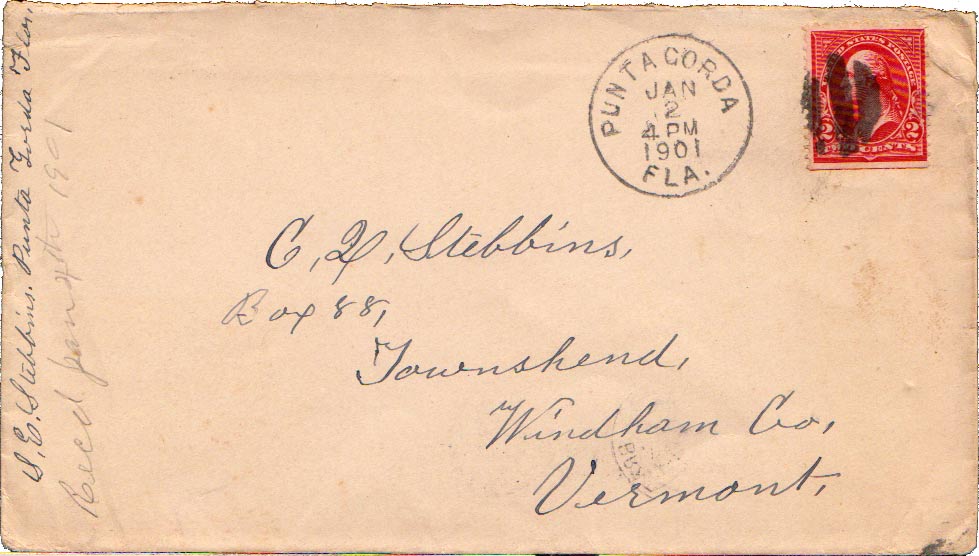 S. E. Stebbins. Punta Gorda Flor.
Recd Jan 1901
PUNTA GORDA
JAN
2
4 PM
1901
FLA.
UNITED STATES POSTAGE
2 2
TWO CENTS
C. Stebbins,
Box 88,
Townshend,
Windham Co,
Vermont,